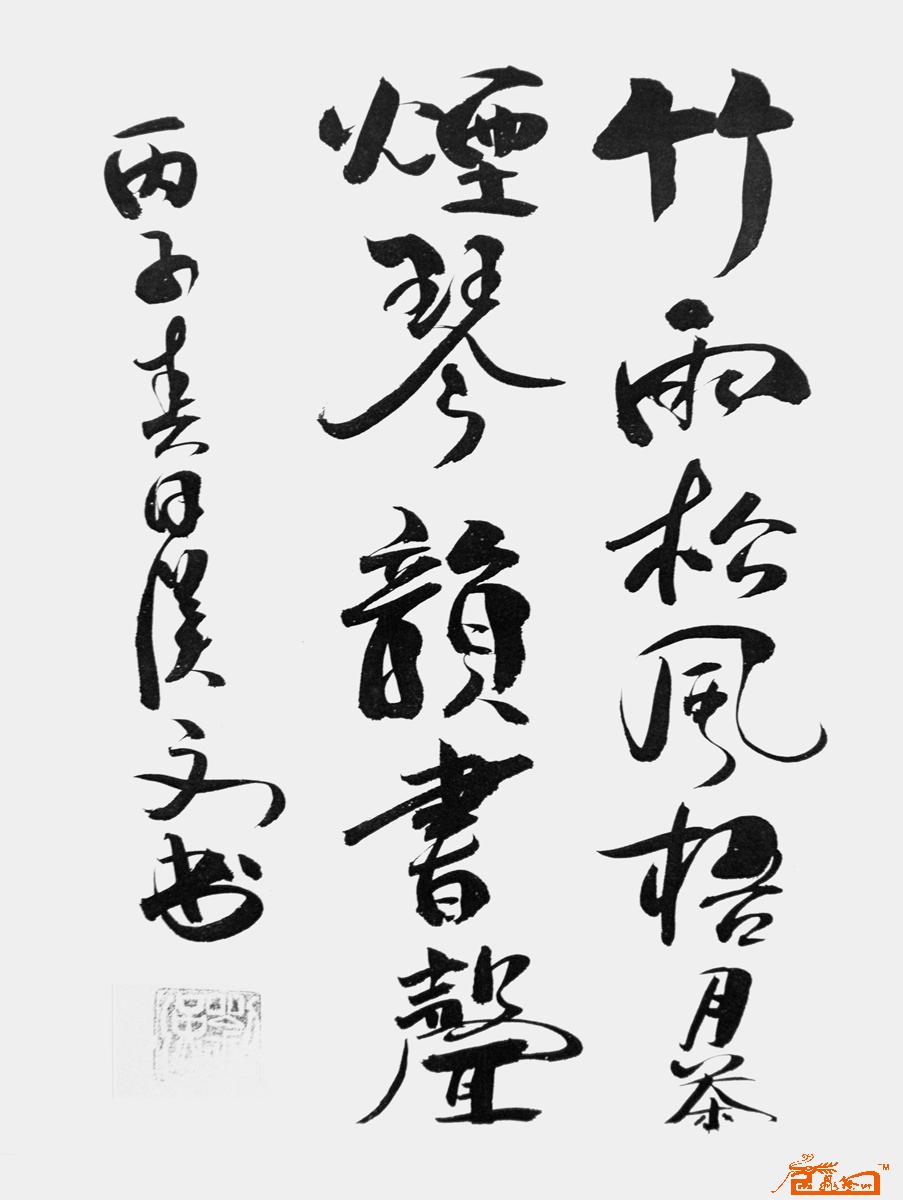 竹雨松風梧月茶
煙琴韻書聲
丙子春日漢文书